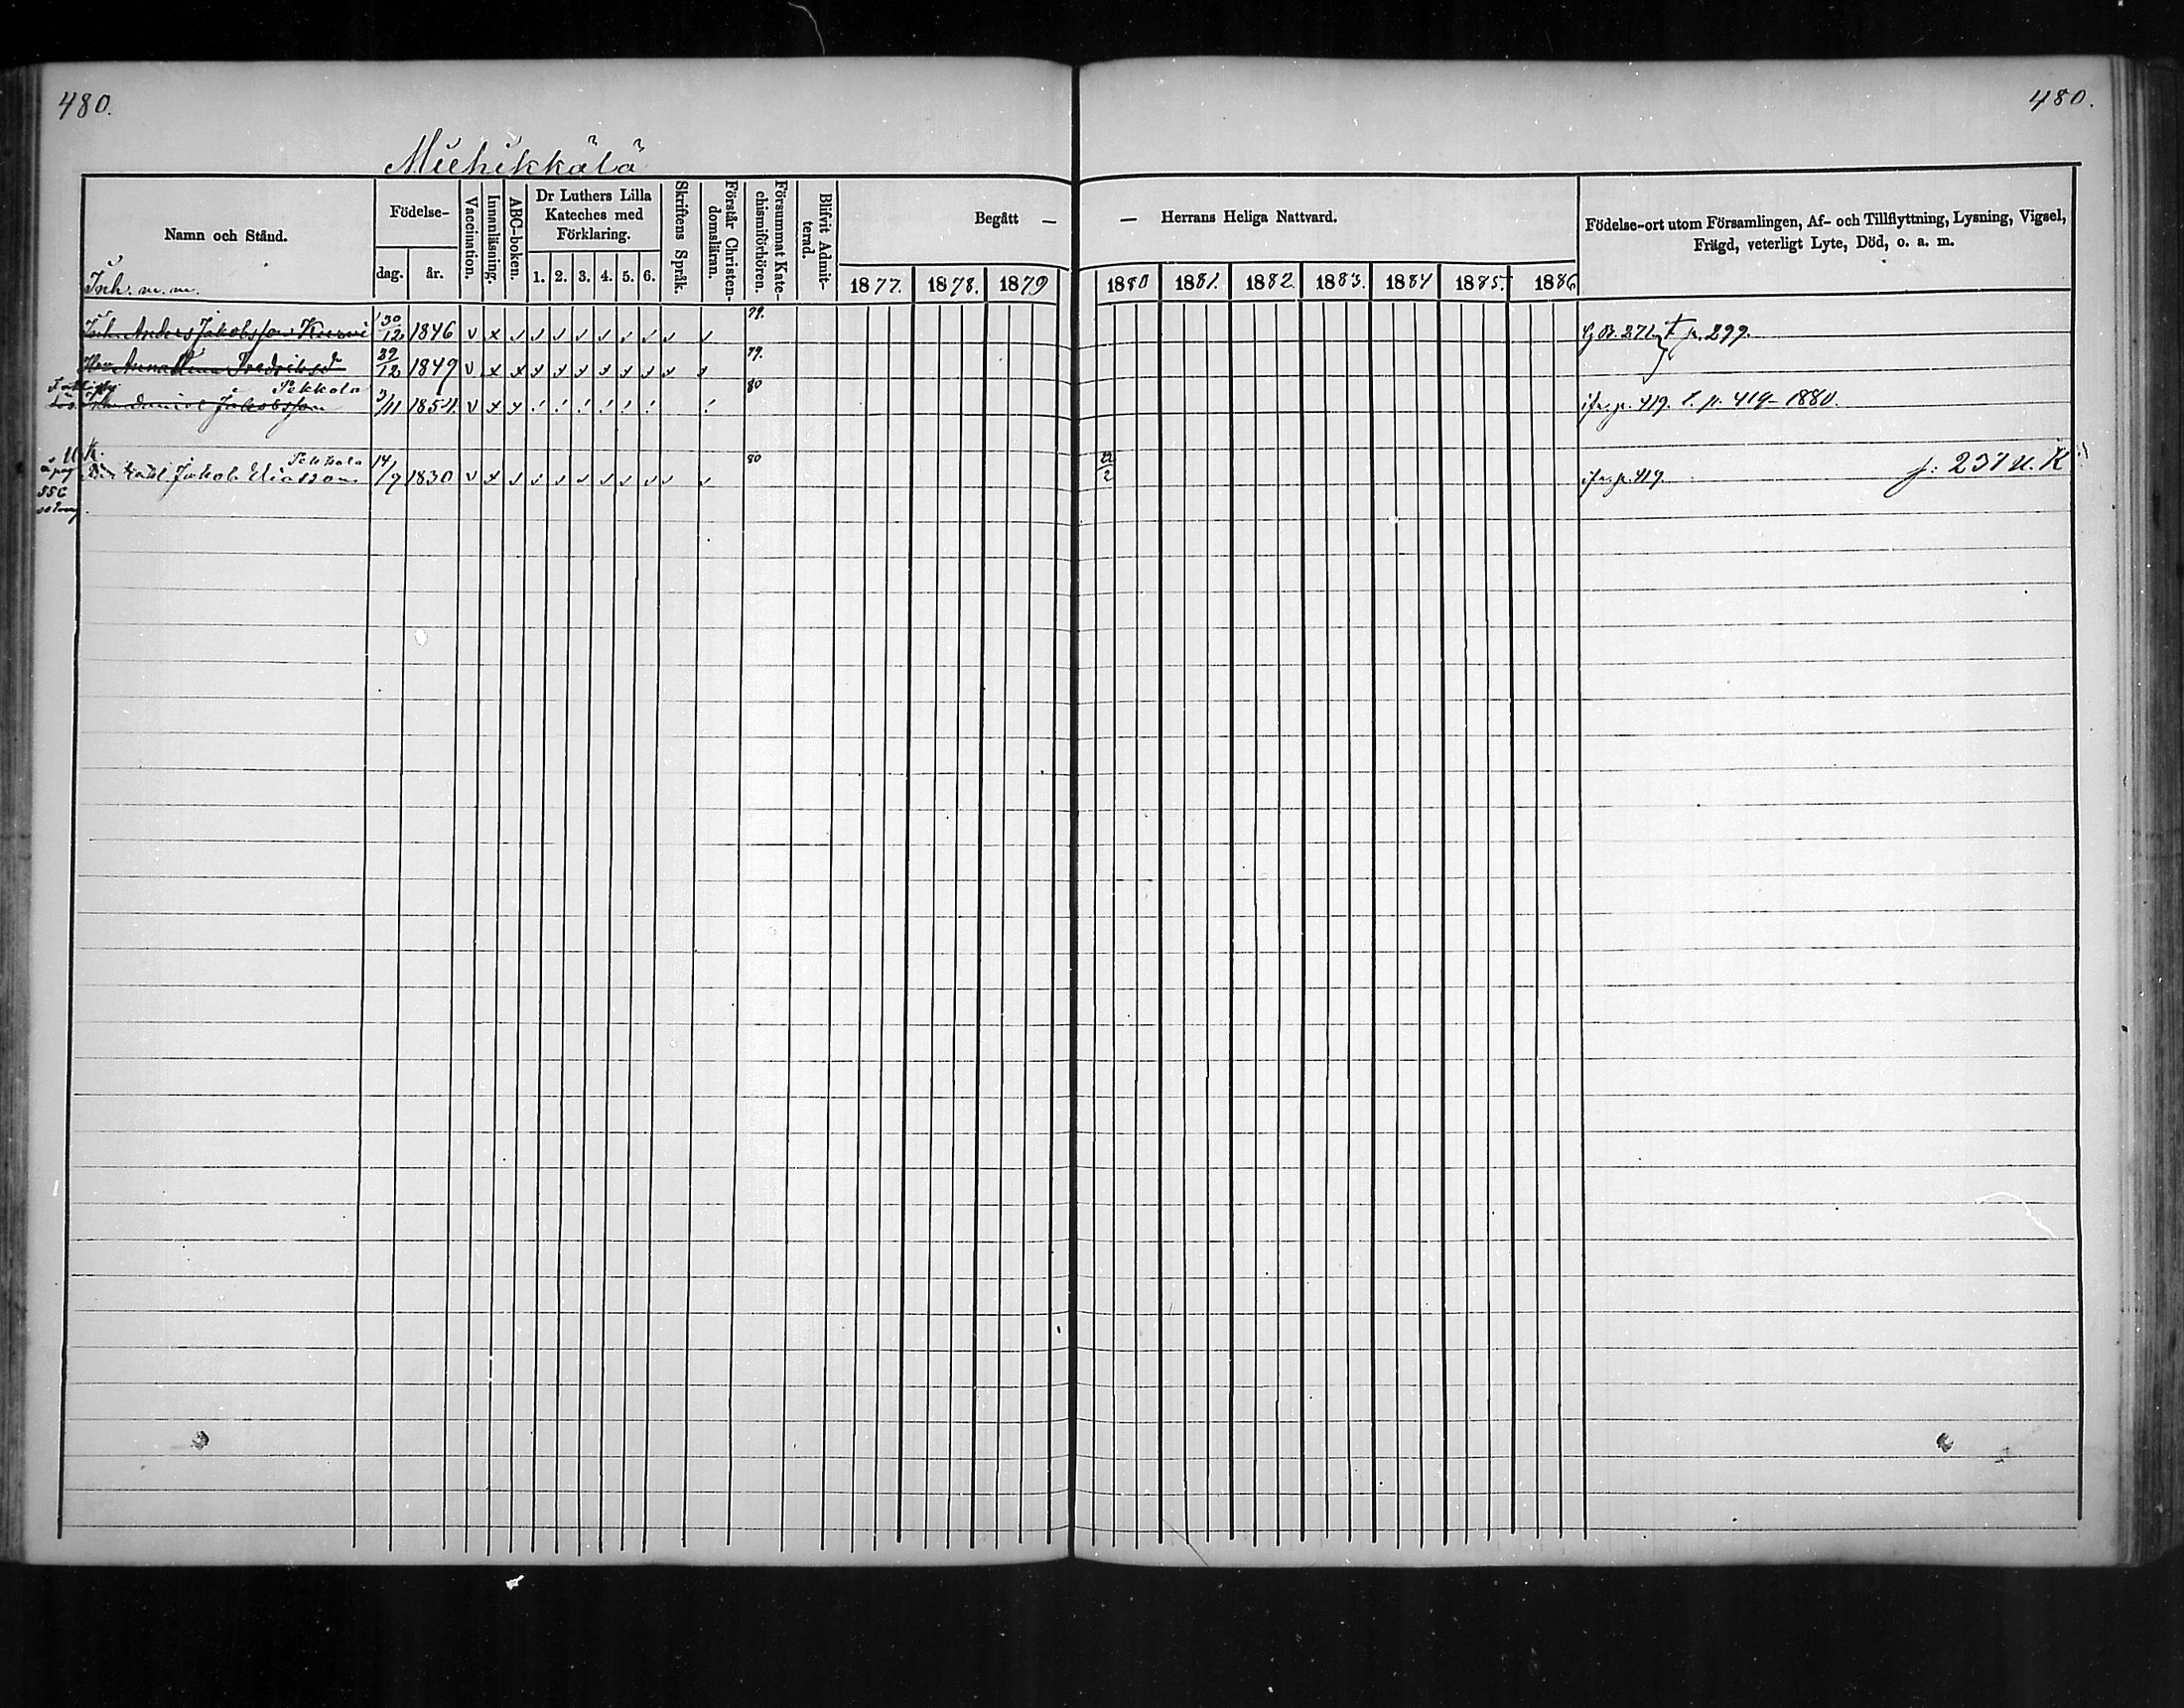 480.
480.
Miehikkälä
Namn och Stånd.
Inh. m. m.
Födelse-
dag.
år.
Vaccination.
Innanläsning.
ABC-boken.
Dr Luthers Lilla
Kateches med
Förklaring.
1. 2. 3. 4. 5. 6.
Skriftens Språk.
Förstår Christen-
domsläran.
Försummat Kate-
chismiförhören.
Blifvit Admit-
terad.
Begått —
— Herrans Heliga Nattvard.
1877. 1878. 1879
1880 1881. 1882. 1883. 1884 1885. 1886
Födelse-ort utom Församlingen, Af- och Tillflyttning, Lysning, Vigsel,
Frägd, veterligt Lyte, Död, o. a. m.
Inh. Anders Jakobsson Kurvi 30/12 1846 79. p. 299.
Anna Fredriksd 29/12 1849 79.
Pekkola
Daniel Jakobsson 3/11 1854. 80 ifr. p. 419. l. p. 419 - 1880.
U. K.
Pekkola
Jakob Eliasson 14/9 1830 80 22/2 ifr. p. 419. f: 237 U. K